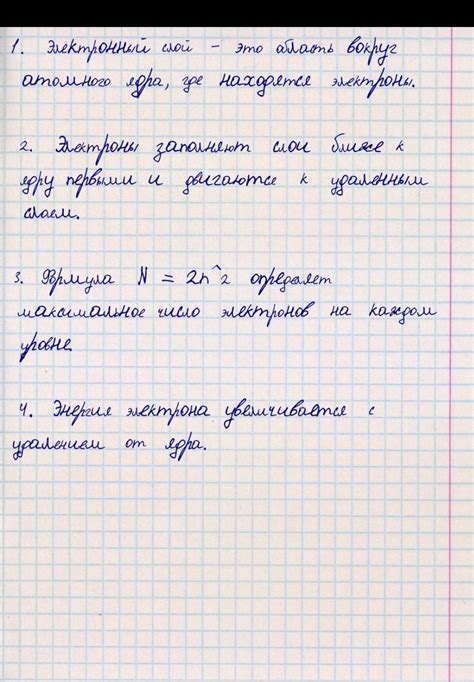 1. Электронный слой - это область вокруг
атомного ядра, где находятся электроны.
2. Электроны заполняют слои ближе к
ядру первыми и двигаются к удаленным
слоям.
3. Формула N = 2n^2 определяет
максимальное число электронов на каждом
уровне.
4. Энергия электрона увеличивается с
удалением от ядра.